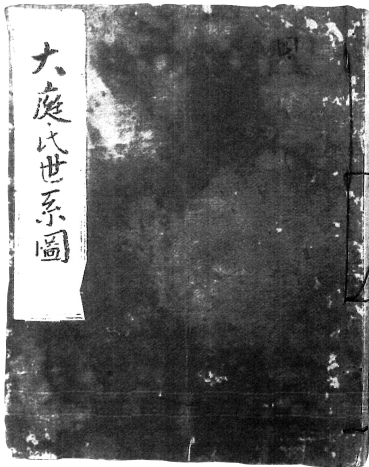 大庭氏世系圖